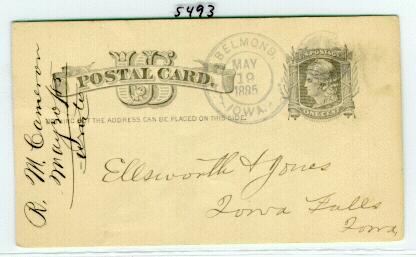 5493
BELMOND,
MAY
19
1885
IOWA.
US
POSTAL CARD.
NOTHING BUT THE ADDRESS CAN BE PLACED ON THIS SIDE.
POSTAGE
ONE CENT
R. M. Cameron
Ellsworth & Jones
Iowa Falls
Iowa